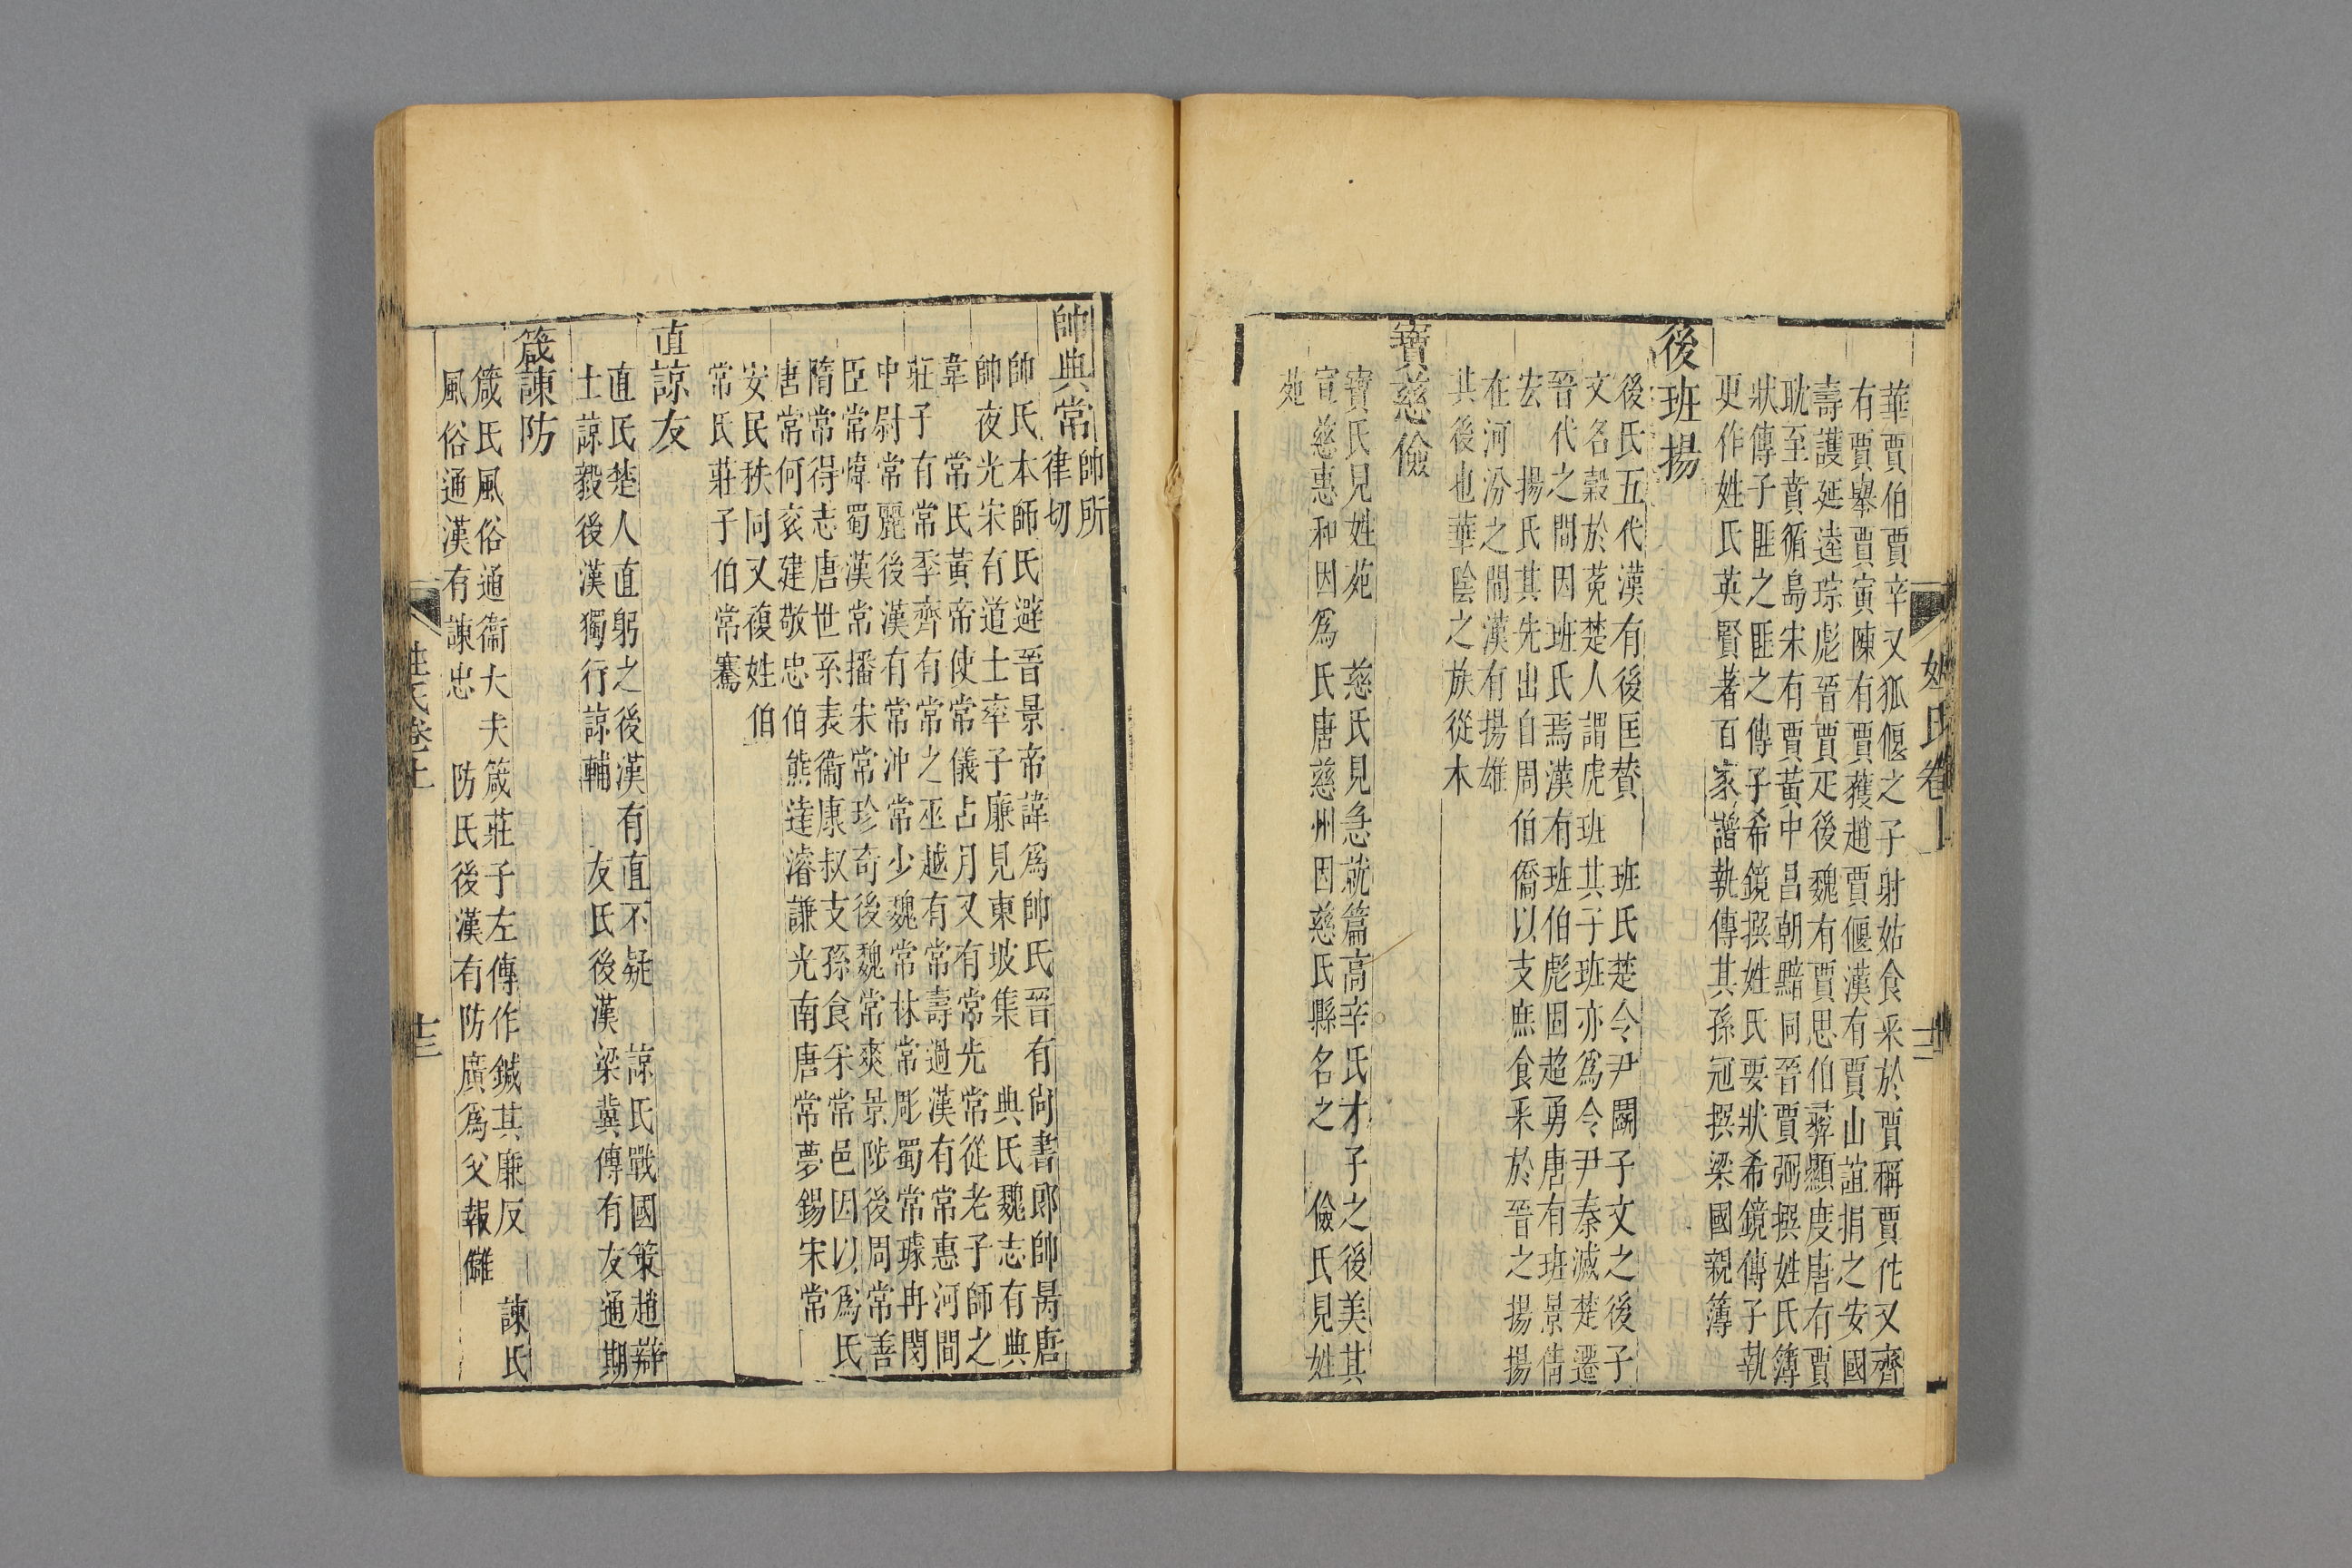 華賈伯賈辛又狐偃之子射姑食采於賈稱賈佗又齊
有賈舉賈寅陳有賈獲趙賈偃漢有賈山誼捐之安國
壽護延逵琮彪晉賈疋後魏有賈思伯彝顯度唐有賈
耽至賁循島宋有賈黃中昌朝黯同晉賈弼撰姓氏簿
狀傳子匪之匪之傳子希鏡撰姓氏要狀希鏡傳子執
更作姓氏英賢著百家譜執傳其孫冠撰梁國親簿
後班揚
後氏五代漢有後匡贊 班氏楚令尹鬬子文之後子
文名穀於菟楚人謂虎班其子班亦爲令尹秦滅楚遷
晉代之間因班氏焉漢有班伯彪固超勇唐有班景倩
宏 揚氏其先出自周伯僑以支庶食采於晉之揚揚
在河汾之間漢有揚雄
其後也華陰之族從木
寶慈儉
寶氏見姓苑 慈氏見急就篇高辛氏才子之後美其
宣慈惠和因爲氏唐慈州因慈氏縣名之 儉氏見姓
苑
姓氏卷
帥典常帥所
律切
帥氏本師氏避晉景帝諱爲帥氏晉有尚書郎帥昺唐
帥夜光宋有道士率子廉見東坡集 典氏魏志有典
韋 常氏黃帝使常儀占月又有常先常從老子師之
莊子有常季齊有常之巫越有常壽過漢有常惠河間
中尉常麗後漢有常沖常少魏常林常彫蜀常璩冉閔
臣常煒蜀漢常播宋常珍奇後魏常爽景陟後周常善
隋常得志唐世系表衞康叔支孫食采常邑因以爲氏
唐常何袞建敬忠伯熊達濬謙光南唐常夢錫宋常
安民秩同又複姓伯
常氏莊子伯常騫
直諒友
直氏楚人直躬之後漢有直不疑 諒氏戰國策趙辯
士諒毅後漢獨行諒輔 友氏後漢梁冀傳有友通期
箴諫防
箴氏風俗通衞大夫箴莊子左傳作鍼其廉反 諫氏
風俗通漢有諫忠 防氏後漢有防廣爲父報讎
姓氏卷上
十三